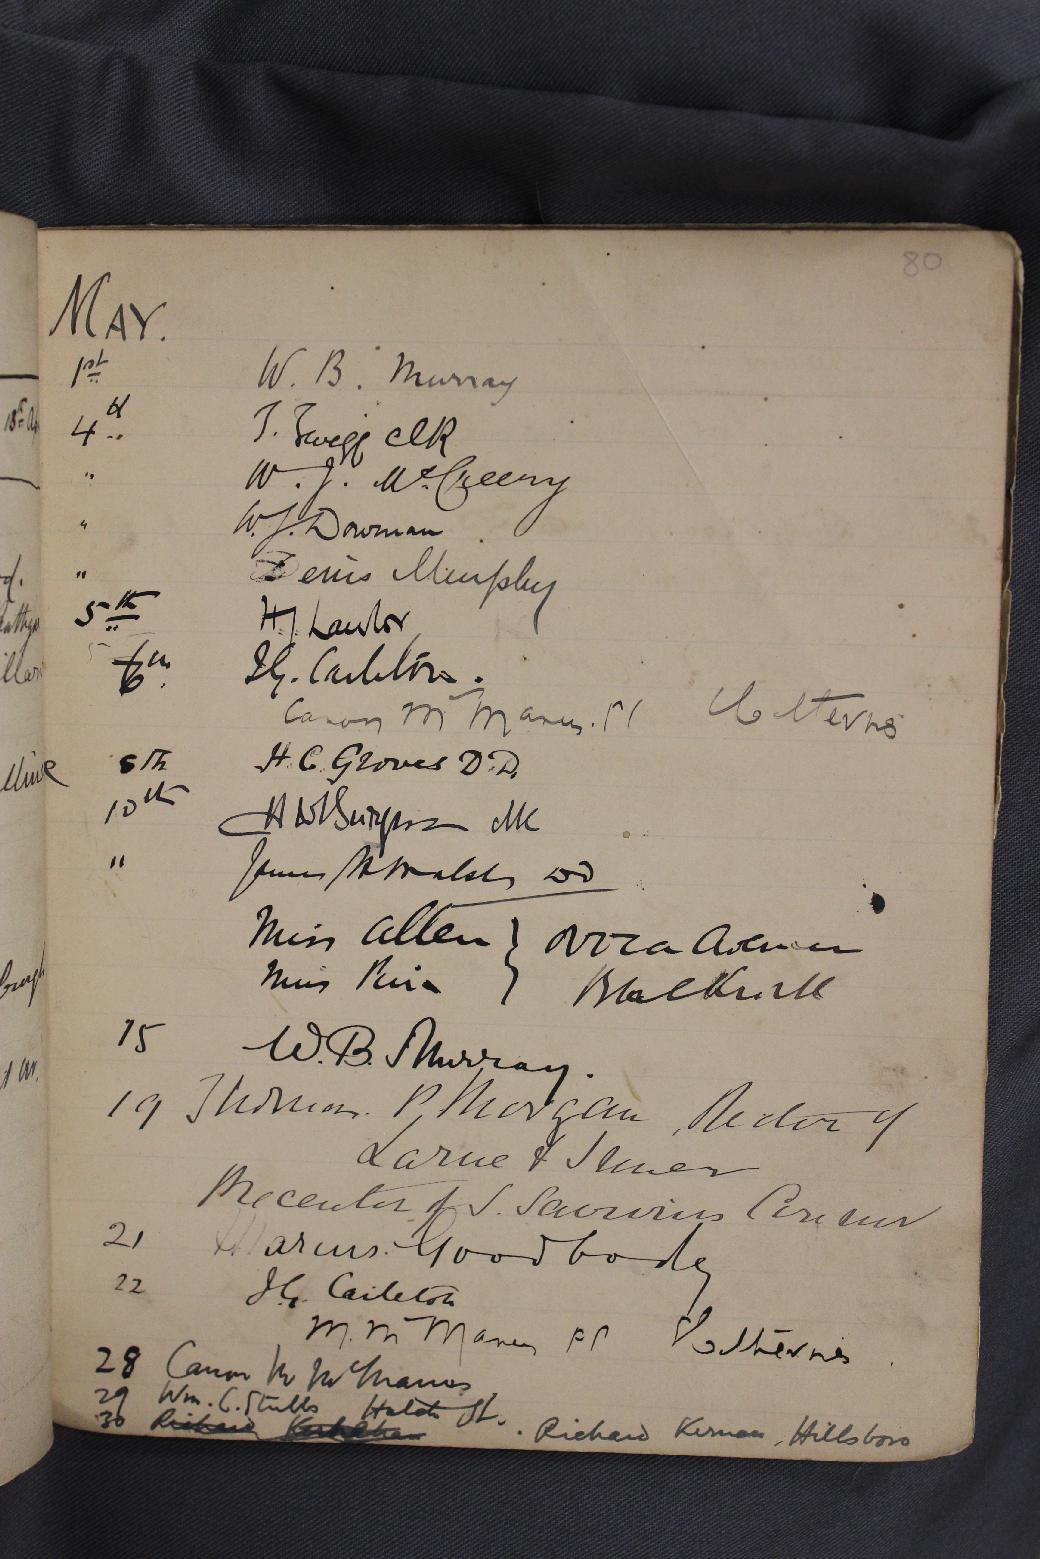 80
MAY.
1st W. B. Murray
4th T. Twigg clk
" W. J. McCreery
" W. J. Dowman
" Denis Murphy
5th H. J. Lawlor
6th J. G. Carleton.
Canon McManus. P P
8th H. C. Groves D.D.
10th Burgess clk
" James Walsh DD
Miss Allen } Avenue
Miss } Blackrock
15 W. B. Murray.
19 Thomas. P. Morgan, Rector of
Larne & Inver
Precentor of S. Saviours Connor
21 Marcus. Goodbody
22 J. G. Carleton
M. McManus PP
28 Canon M McManus
29 Wm. C. Stubbs Hatch St.
30 Richard . Richard Kernan, Hillsboro